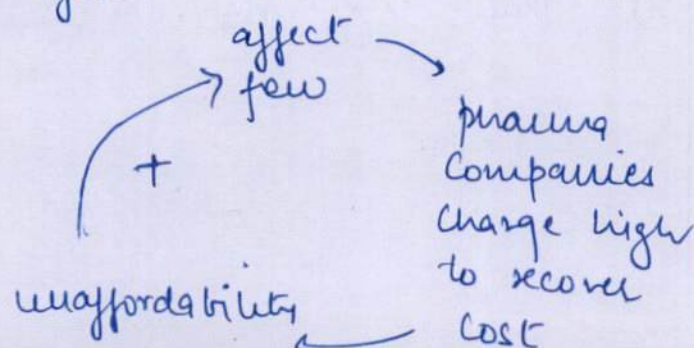 affect
few
pharma
Companies
Charge high
to recover
Cost
+
unaffordability